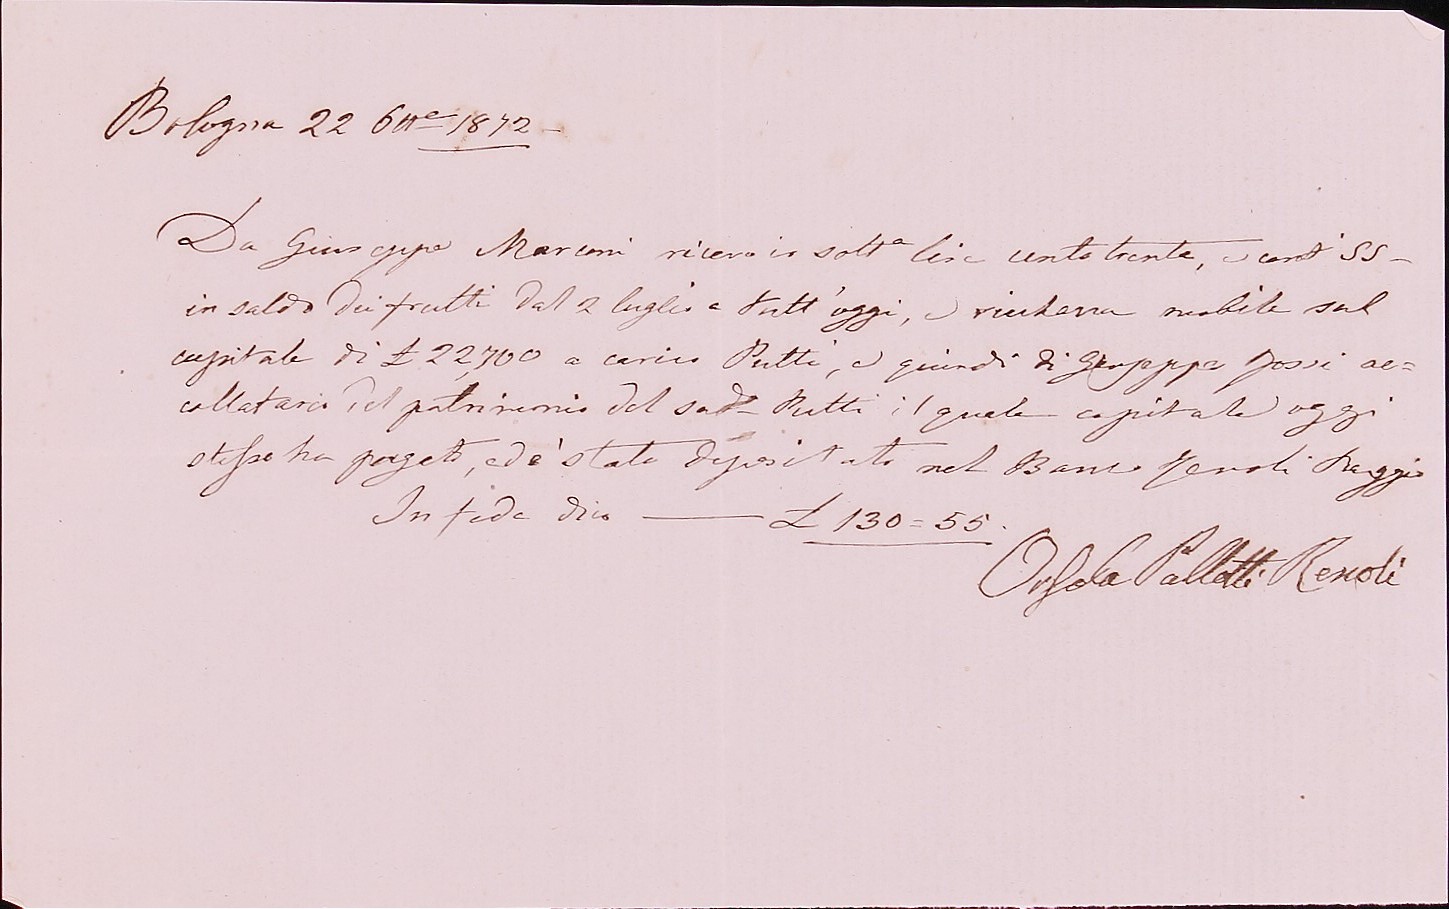 Bologna 22 6tt.e 1872 –
Da Giuseppe Marconi ricevo io sott.a lire cento trenta, e cent.i 55 –
in saldo dei frutti dal 2 luglio a tutt'oggi, e ricchezza mobile sul
capitale di £ 22,700 a carico Putti, e quindi di Giuseppe Rossi ac=
collatario del patrimonio del sud.o Putti il quale capitale oggi
stesso ha pagato, ed è stato depositato nel Banco Renoli Raggio
In fede dico ——— £ 130=55.
Orsola Pallotti Renoli